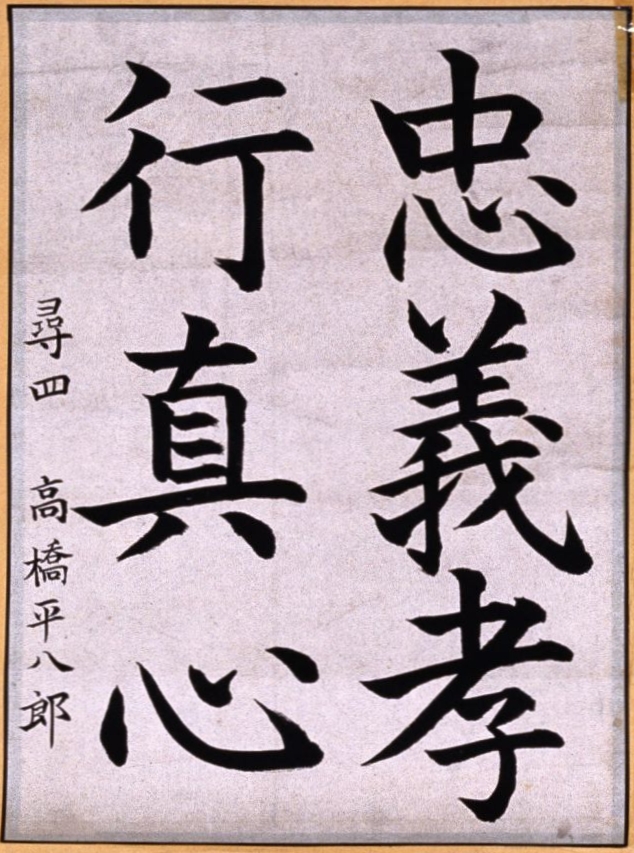 忠義孝
行真心
尋四 高橋平八郎